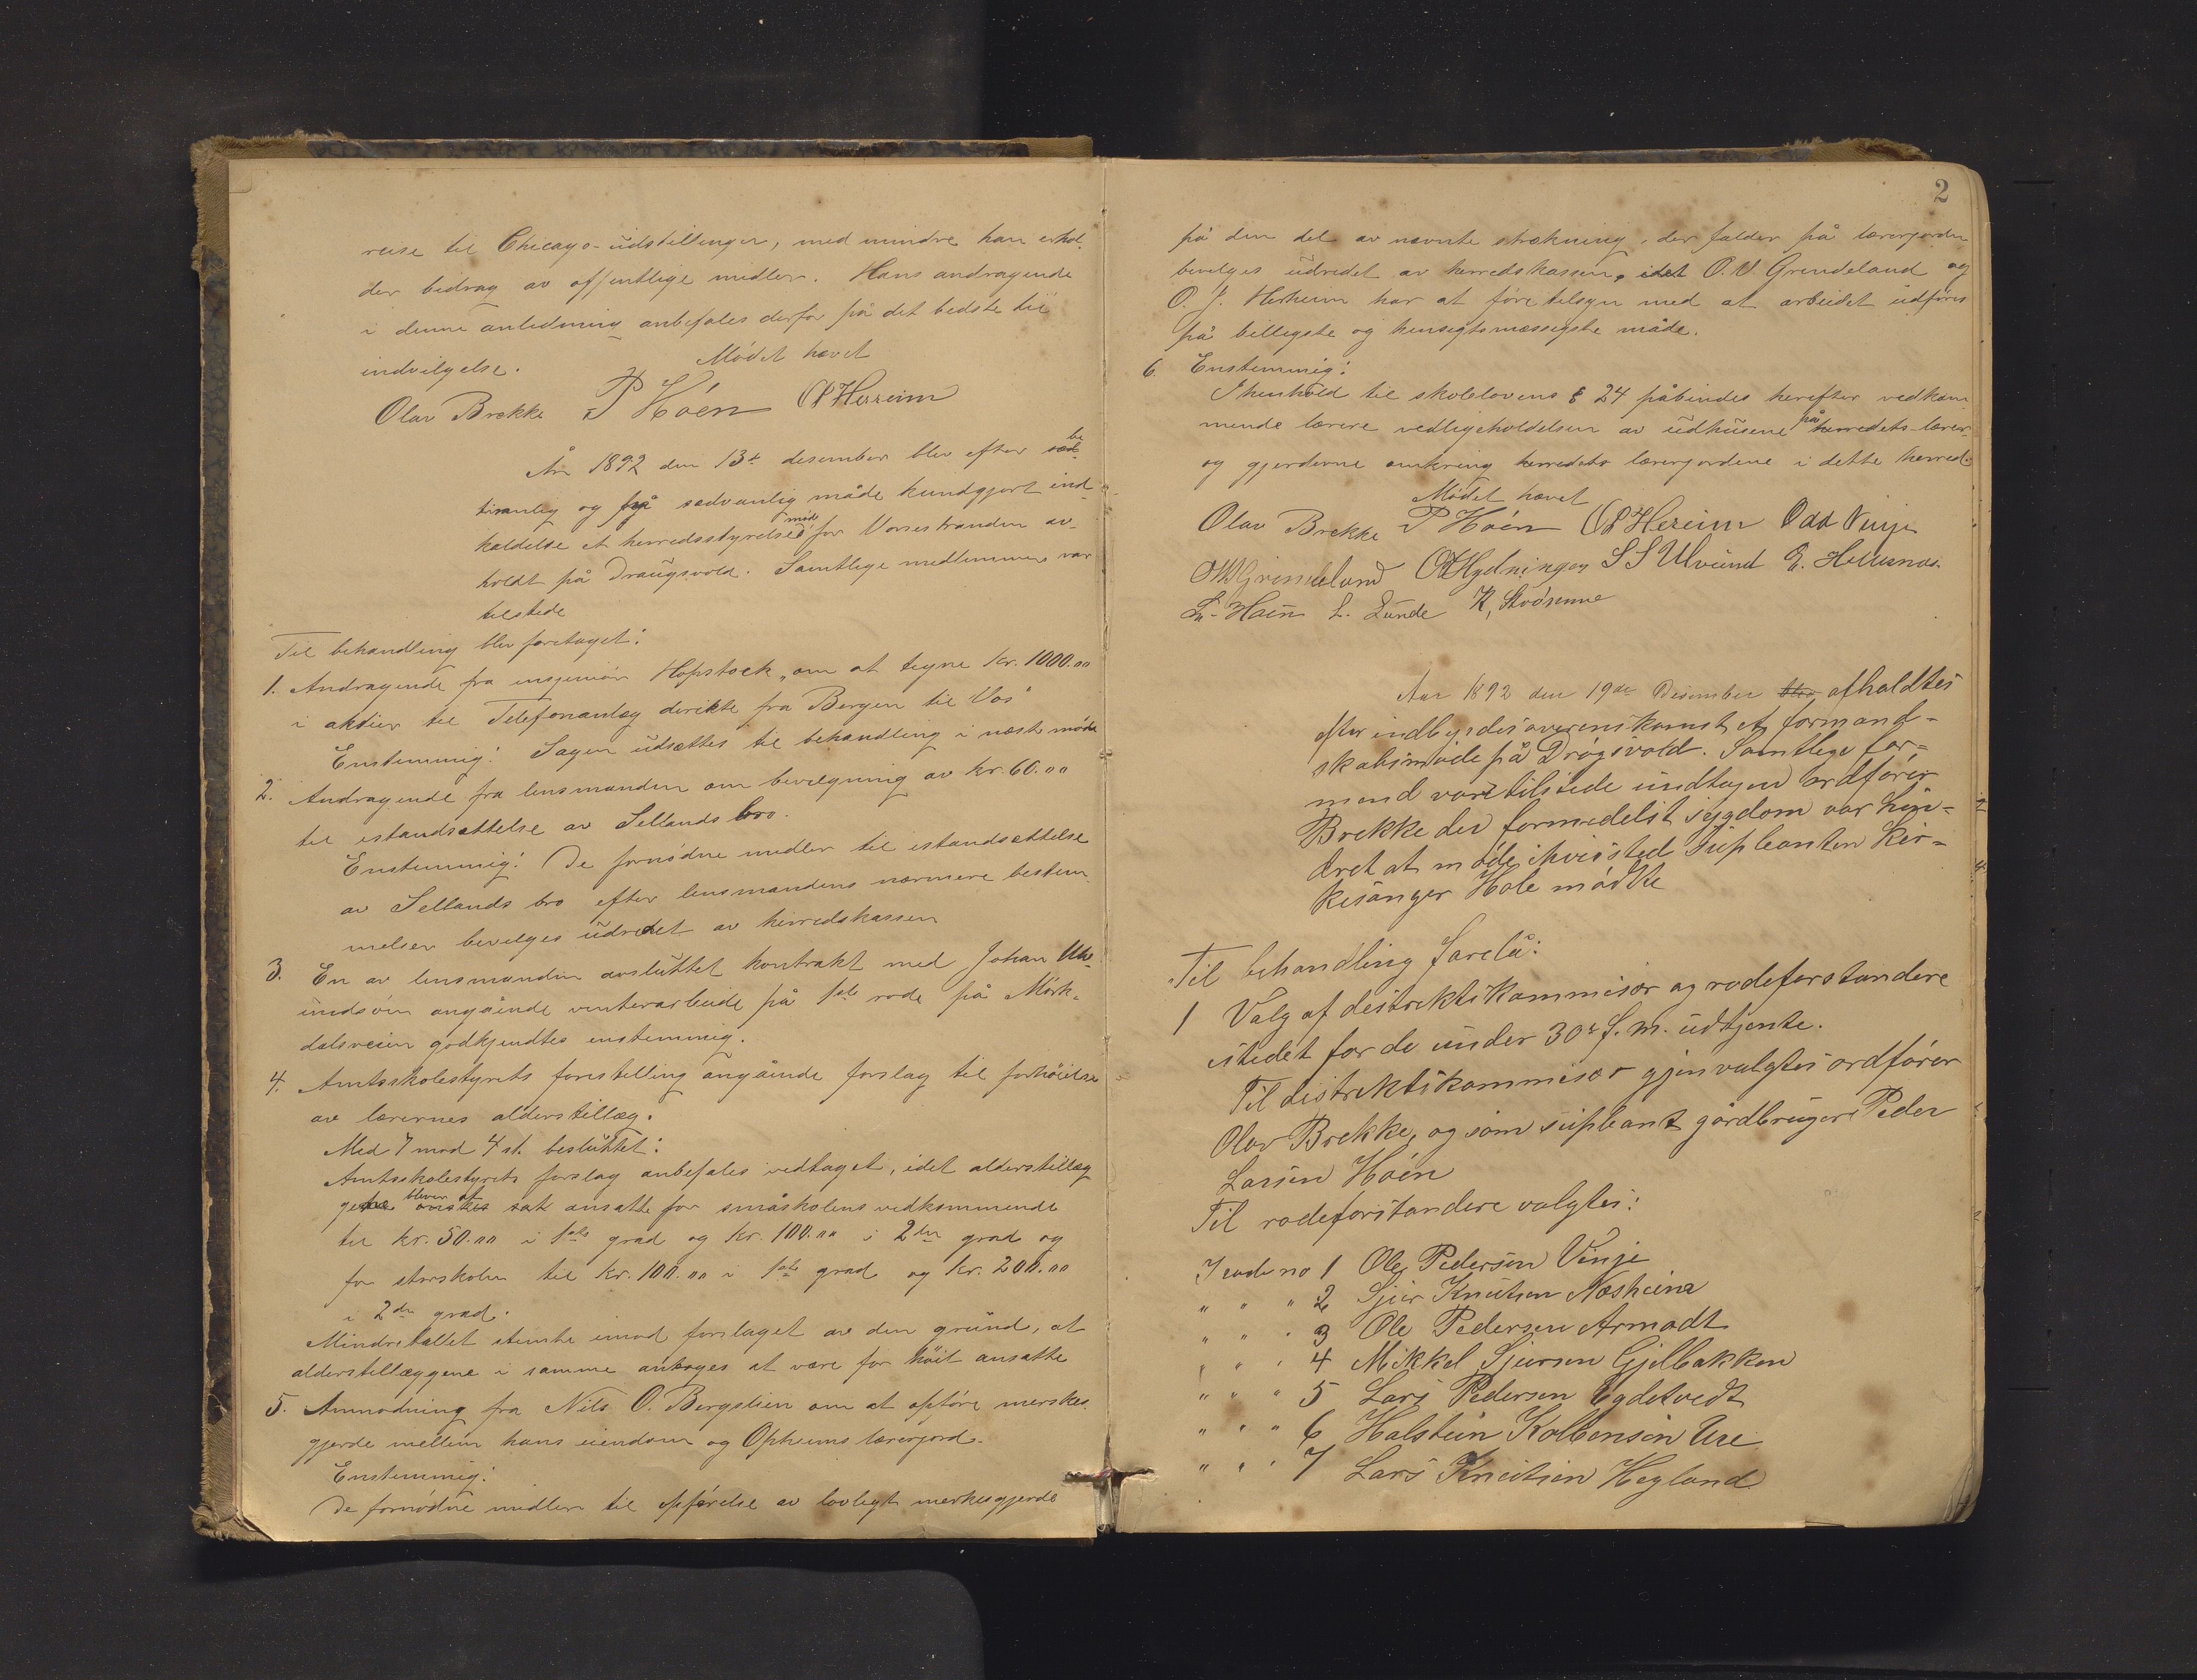 reise til Chicago-udstillingen, med mindre han erhol-
der bidrag av offentlige midler. Hans andragende
i denne anledning anbefales derfor på det bedste til
indvilgelse.
Mødet hævet
Olav Brekke P Höen OPHereim
År 1892 den 13de desember blev efter be
timmelig og på sædvanlig måde kundgjort ind-
kaldelse et herredsstyrelsesmøde for Vossestranden av-
holdt på Draugsvold. Samtlige medlemmer var
tilstede
Til behandling blev foretaget:
1. Andragende fra ingeniør Hopstock „om at tegne kr. 1000.00
i aktier til Telefonanlæg direkte fra Bergen til Vos"
Enstemmig: Sagen udsættes til behandling i næste møde
2. Andragende fra lensmanden om bevilgning av kr. 60.00
til istandsættelse av Sellands bro.
Enstemmig: De fornødne midler til istandsættelse
av Sellands bro efter lensmandens nærmere bestem-
melser bevilges udredet av herredskassen
3. En av lensmanden avsluttet kontrakt med Johan Ulv-
undsøen angående vinterarbeide på 1ste rode på Mörk-
dalsveien godkjendtes enstemmig.
4. Amtsskolestyrets forestilling angående forslag til forhöielse
av lærernes alderstillæg.
Med 7 mod 4 st. besluttet:
Amtsskolestyrets forslag anbefales vedtaget, idet alderstillæg
gene bliver at ansatte for småskolens vedkommende
til kr. 50.00 i 1ste grad og kr. 100.00 i 2den grad og
for storskolen til kr. 100.00 i 1ste grad og kr. 200.00
i 2den grad.
Mindretallet stemte imod forslaget av den grund, at
alderstillæggene i samme antages at være for höit ansatte
5. Anmodning fra Nils O. Bergslien om at opføre merskes-
gjerde mellem hans eiendom og Opheims lærerjord.
Enstemmig:
De fornødne midler til opførelse av lovligt merkesgjerde
2
på den del av nævnte strækning, der falder på lærerjorden
bevilges udredet av herredskassen, idet O. V. Grendeland og
O. J. Herheim har at føre tilsyn med at arbeidet udføres
på billigste og hensigtsmæssigste måde.
6. Enstemmig:
I henhold til skolelovens § 24 påbindes herefter vedkom
mende lærere vedligeholdelsen av udhusene på herredets lærer-
og gjerderne omkring herredets lærerjordene i dette herred
Mødet hævet
Olav Brekke P Höen OPHereim Odd Vinje
OVGrindeland S S Ulvund E. Hellesnæs.
L. Lunde
Aar 1892 den 19de Desember blev afholdtes
efter indbyrdes overenskomst et formand-
skabsmøde på Drögsvold. Samtlige for-
mend vare tilstede undtagen ordfører
Brekke der formedelst sygdom var hin-
dret at møde ihvis sted supleanten Kir-
kesanger Hole mødte
Til behandling forelå:
1 Valg af distriktskommisær og rodeforstandere
istedet for de under 30te f. m. udtjente.
Til distriktskommisær gjenvalgtes ordfører
Olav Brekke, og som supleant gårdbruger Peder
Larsen Höen
Til rodeforstandere valgtes:
I rode no 1 Ole Pedersen Vinje
" " " 2 Sjur Knutsen Næsheim
" " " 3 Ole Pedersen Armodt
" " " 4 Mikkel Sjursen Gjelbakken
" " " 5 Lars Pedersen Ygdetvedt
" " " 6 Halstein Kolbensen Ure
" " " 7 Lars Knutsen Hegland